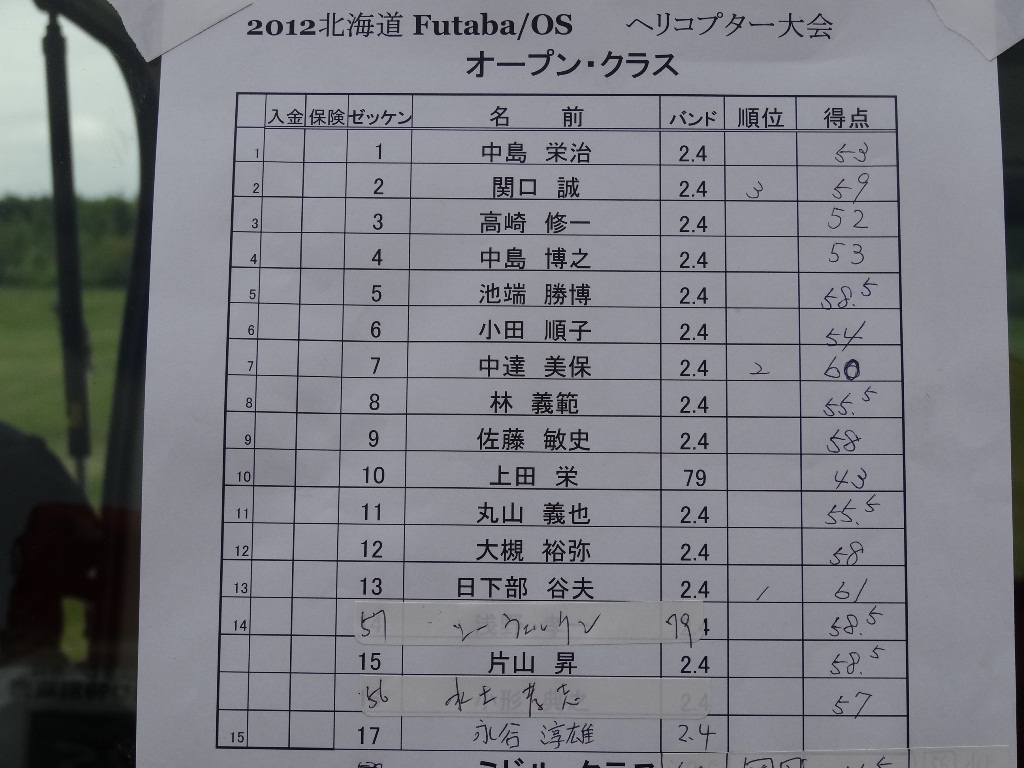 2012北海道 Futaba/OS ヘリコプター大会
オープン・クラス
入金 保険 ゼッケン 名 前 バンド 順位 得点
1 1 中島 栄治 2.4 53
2 2 関口 誠 2.4 3 59
3 3 高崎 修一 2.4 52
4 4 中島 博之 2.4 53
5 5 池端 勝博 2.4 58.5
6 6 小田 順子 2.4 54
7 7 中達 美保 2.4 2 60
8 8 林 義範 2.4 55.5
9 9 佐藤 敏史 2.4 58
10 10 上田 栄 79 43
11 11 丸山 義也 2.4 55.5
12 12 大槻 裕弥 2.4 58
13 13 日下部 谷夫 2.4 1 61
14 57 79 58.5
15 片山 昇 2.4 58.5
56 2.4 57
15 17 永谷 淳雄 2.4
ミドル・クラス